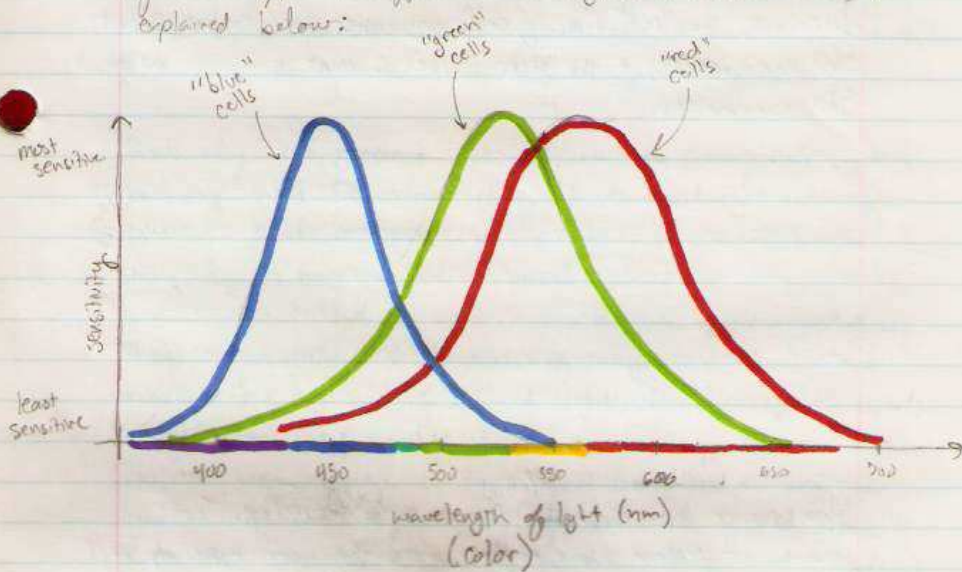 explained below:
"blue"
cells
"green"
cells
"red"
cells
most
sensitive
sensitivity
least
sensitive
400 450 500 550 600 650 700
wavelength of light (nm)
(color)